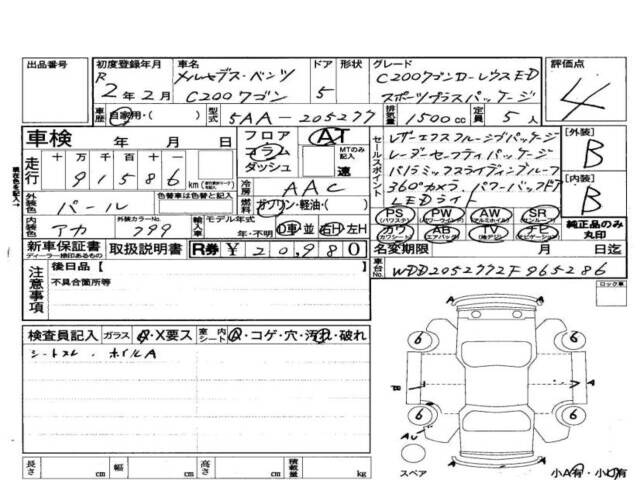 出品番号 初度登録年月 車名 ドア 形状 グレード 評価点
R 2年2月 メルセデス・ベンツ C200ワゴン 5 C200ワゴンローレウスED スポーツプラスパッケージ 4
車歴 自家用・( ) 型式 5AA-205277 排気量 1500cc 定員 5人
車検 年 月 日 フロア コラム ダッシュ AT MTのみ記入 速
走行 十 万 千 百 十 一 91586 km
冷房 AAC
外装色 パール 色替車は色替と記入 燃料 ガソリン・軽油・( )
内装色 アカ 外装カラーNo. 799 輸入車 モデル年式 年・不明 D車 並 右H 左H
セールスポイント レザーエクスクルーシブパッケージ
レーダーセーフティパッケージ
パノラミックスライディングルーフ
360°カメラ、パワーバックドア
LEDライト
[外装] B
[内装] B
PS (パワステ) PW (パワーウインド) AW (アルミホイル) SR (サンルーフ)
カワ (カワシート) AB (エアバック) TV (地デジ) ナビ (ナビゲーション)
純正品のみ丸印
新車保証書 ディーラー捺印あるもの 取扱説明書 R券 ¥20,980 名変期限 月 日迄
車台No. WDD2052772F965286
注意事項 後日品[ ]
不具合箇所等
ロック車
検査員記入 ガラス A・X要ス 室内シート A・コゲ・穴・汚れ・破れ
シートスレ・ホイルA
A
6 6
B A
6 6
AU
A
スペア 小A有・小U有
長さ cm 幅 cm 高さ cm 積載量 kg